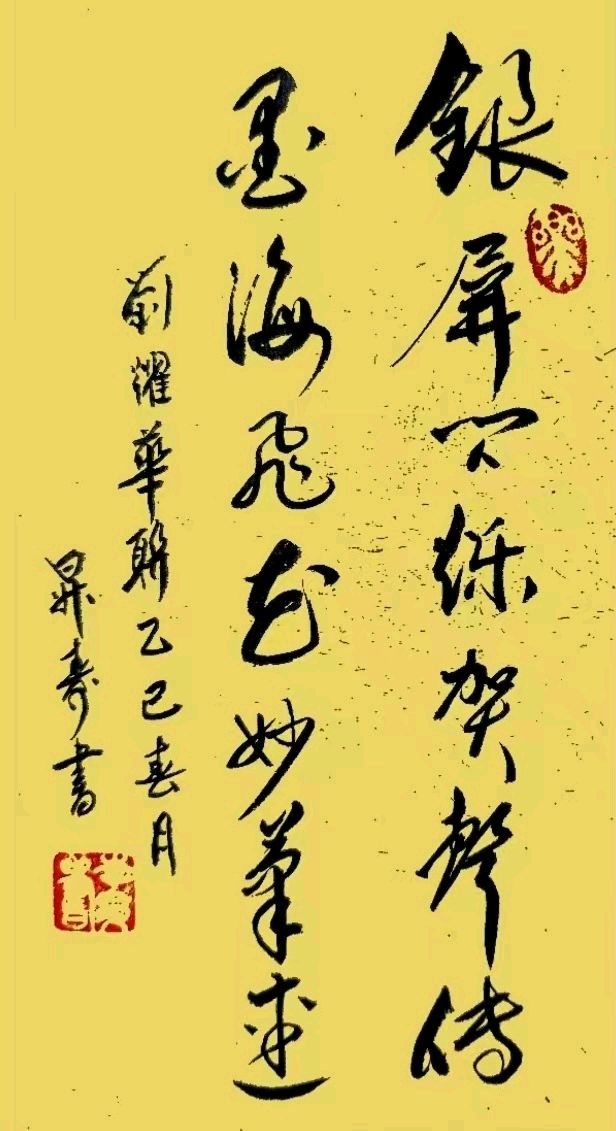 銀屏闪烁賀聲傳
墨海飛花妙筆速
劉耀華聯乙巳春月
昇壽書